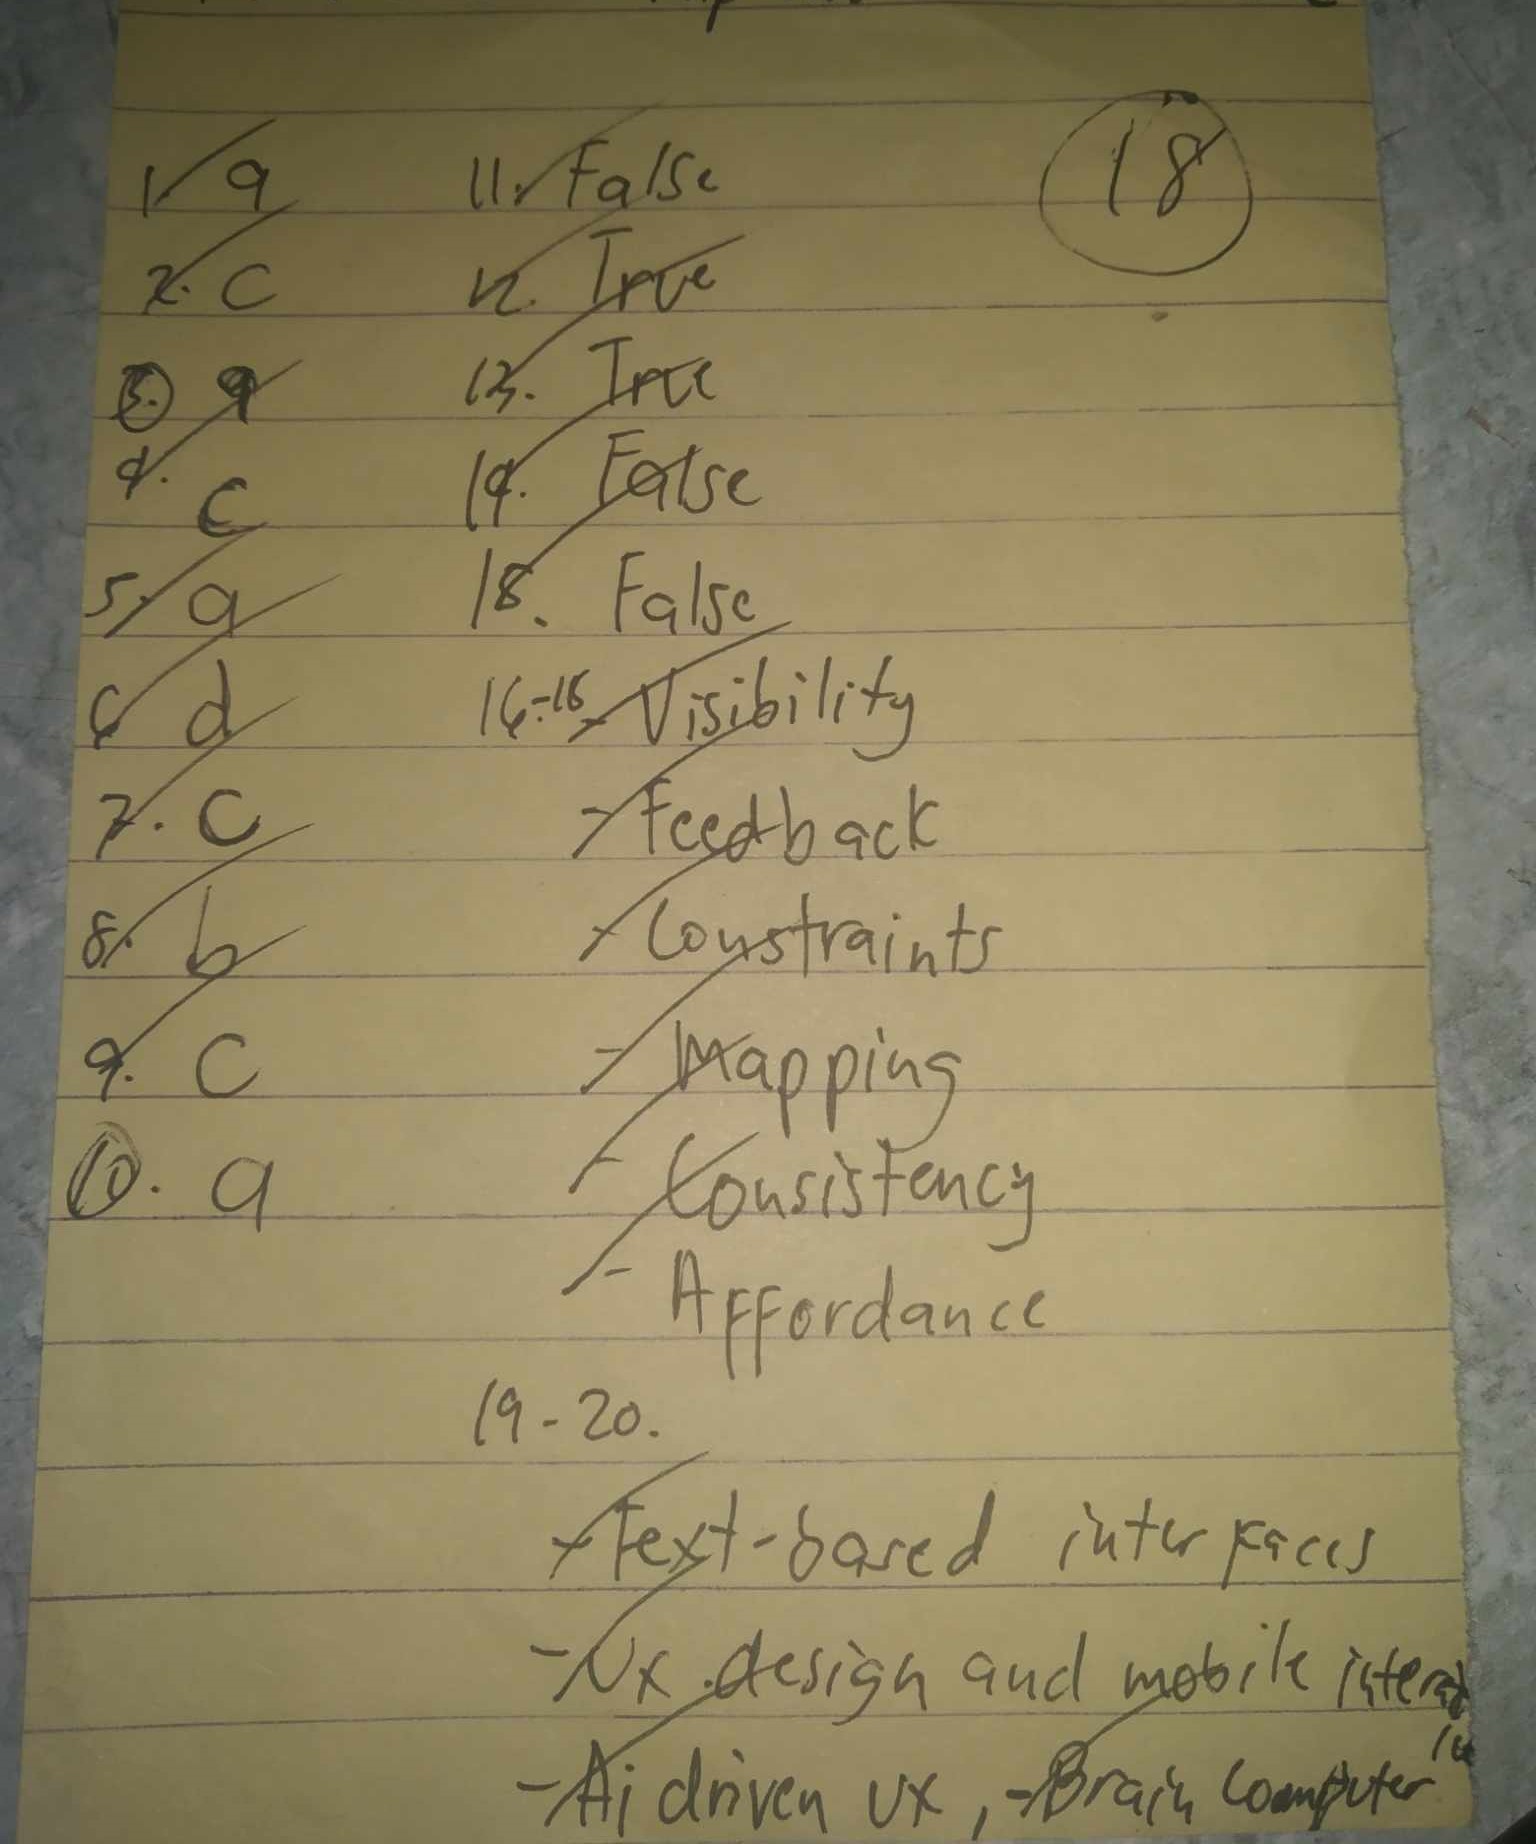 18
1. a
2. c
3. a
4. c
5. a
6. d
7. c
8. b
9. c
10. a
11. False
12. True
13. True
14. False
18. False
16-18 - Visibility
- Feedback
- Constraints
- Mapping
- Consistency
- Affordance
19-20.
- Text-based interfaces
- Ux design and mobile
- Ai driven ux, - Brain Computer